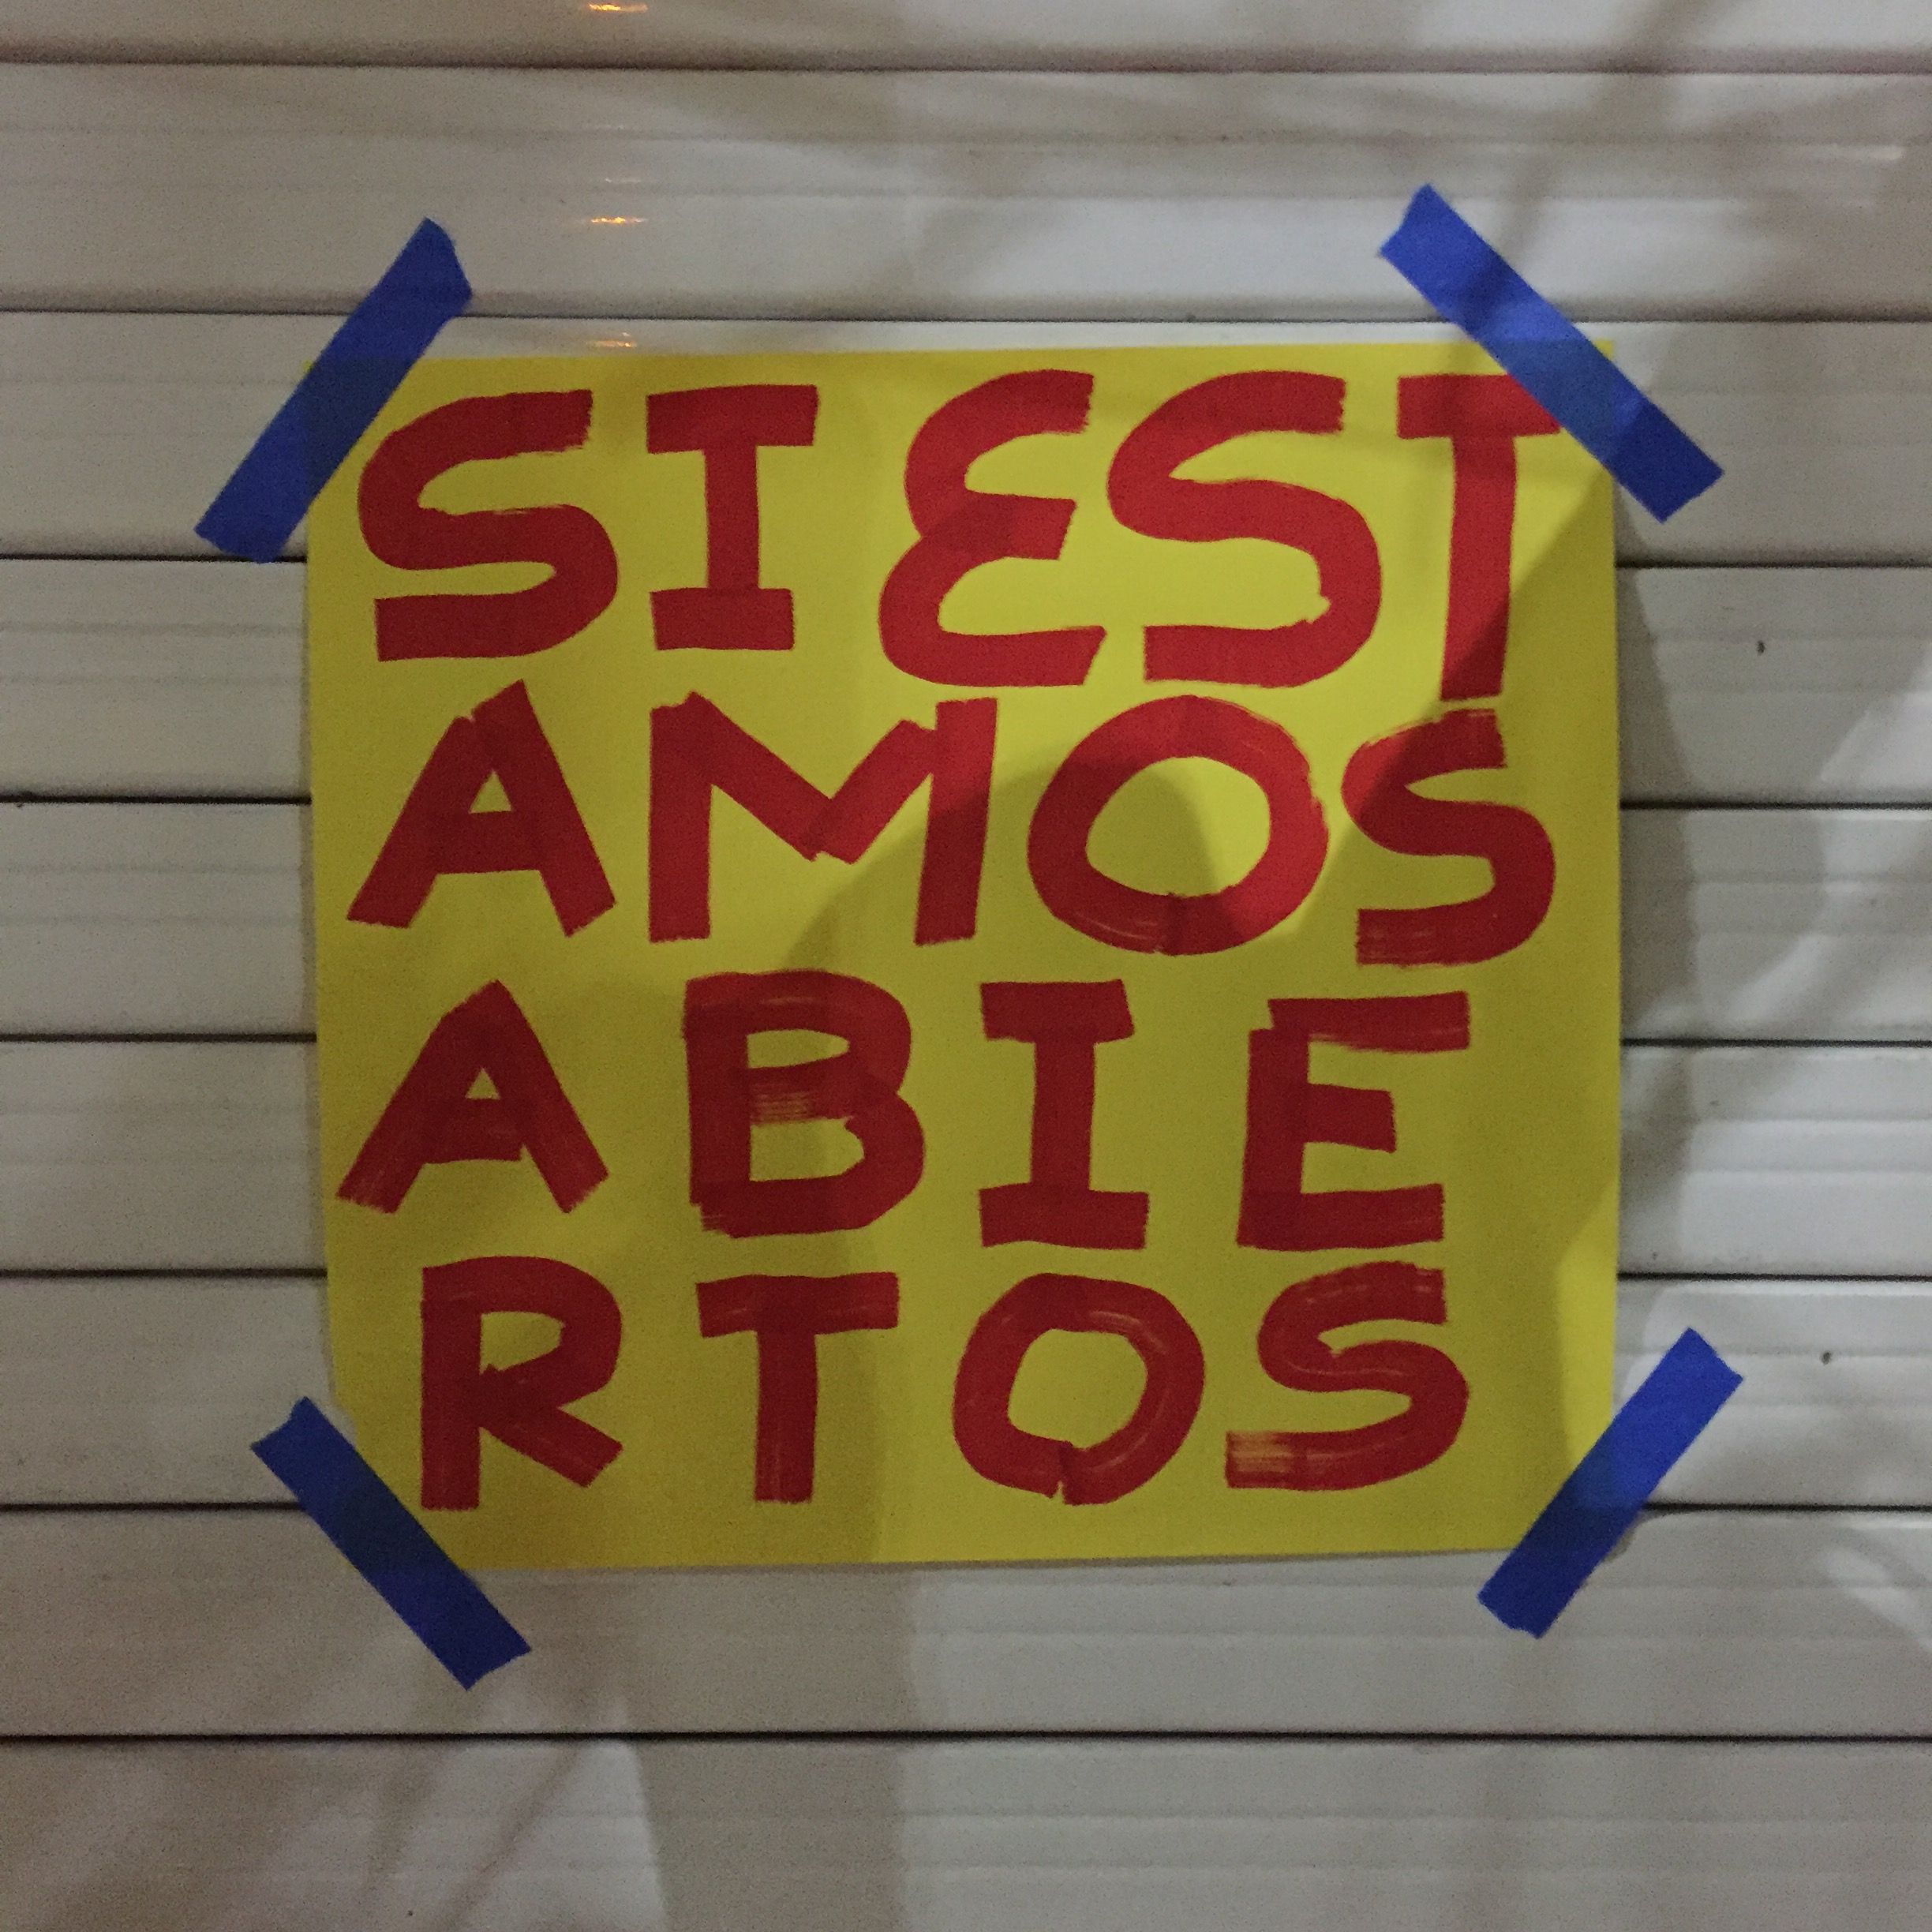 SI EST
AMOS
ABIE
RTOS